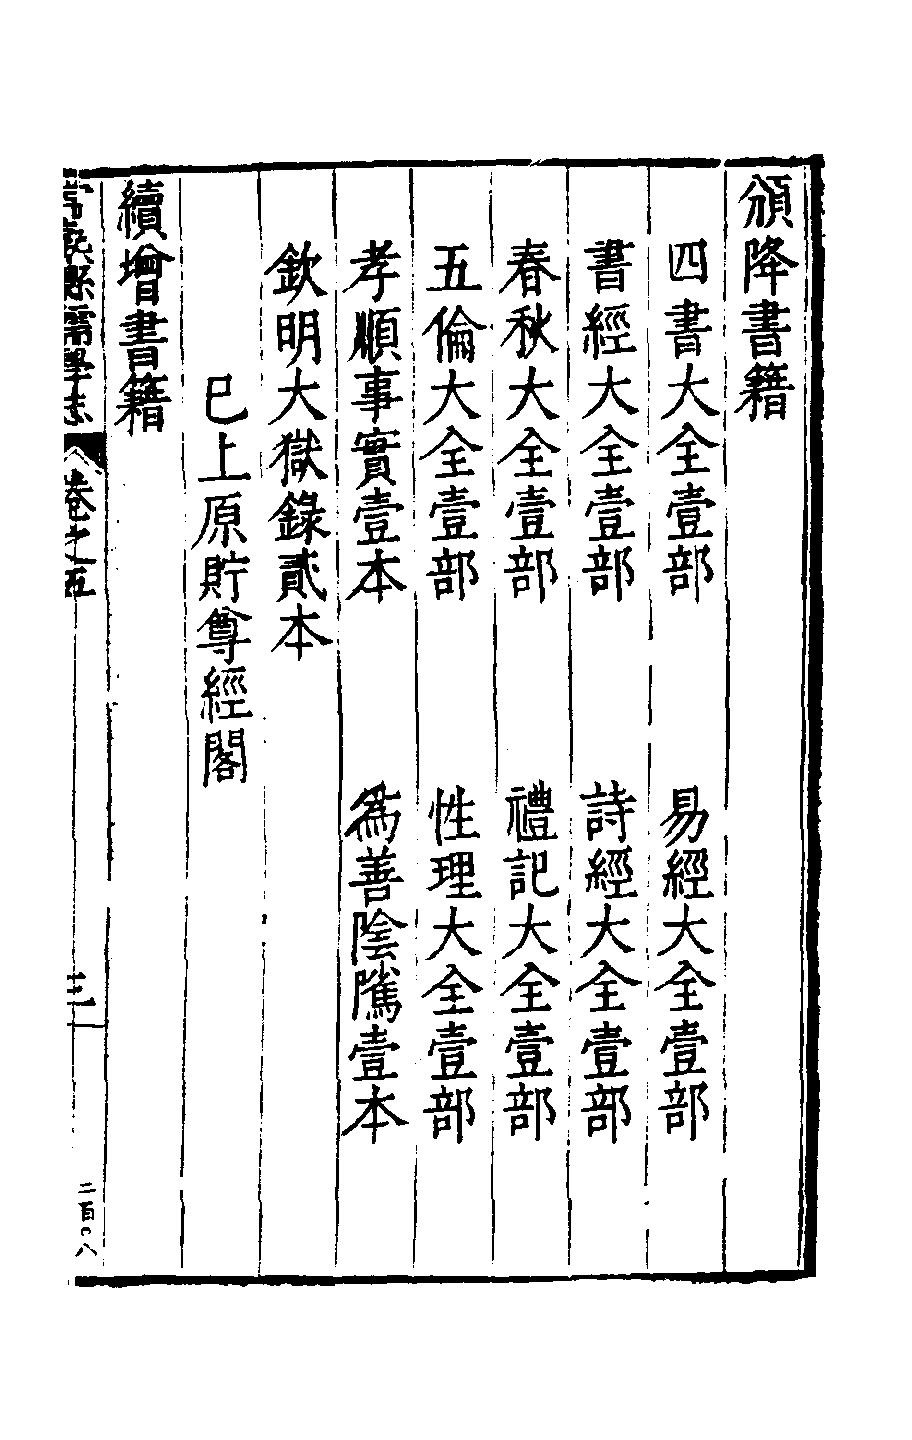 頒降書籍
四書大全壹部　易經大全壹部
書經大全壹部　詩經大全壹部
春秋大全壹部　禮記大全壹部
五倫大全壹部　性理大全壹部
孝順事實壹本　為善陰隲壹本
欽明大獄錄貳本
巳上原貯尊經閣
續增書籍
常熟縣儒學志　卷之五　三　二百〇八